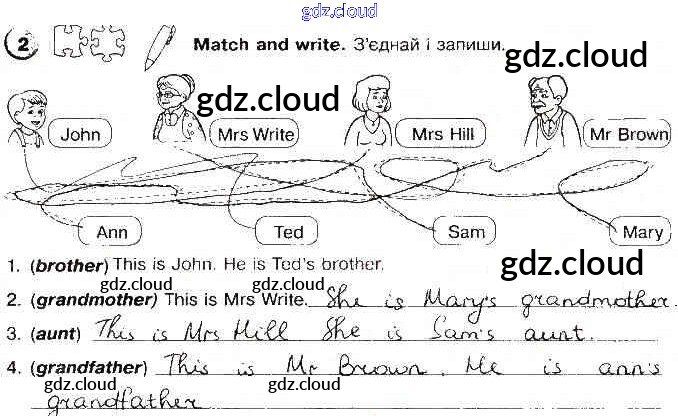 gdz.cloud
2 Match and write. З'єднай і запиши.
gdz.cloud
gdz.cloud
gdz.cloud
John Mrs Write Mrs Hill Mr Brown
Ann Ted Sam Mary
1. (brother) This is John. He is Ted's brother.
gdz.cloud
gdz.cloud
gdz.cloud
2. (grandmother) This is Mrs Write. She is Mary's grandmother.
3. (aunt) This is Mrs Hill She is Sam's aunt.
gdz.cloud
4. (grandfather) This is Mr Brown. He is ann's
gdz.cloud
gdz.cloud
gdz.cloud
grandfather